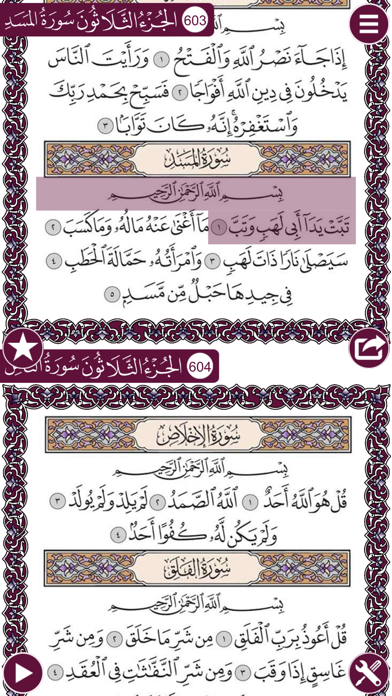 الجُزْءُ الثَّلَاثُونَ سُورَةُ المَسَدِ 603
بِسْمِ اللَّهِ الرَّحْمَٰنِ الرَّحِيمِ
إِذَا جَاءَ نَصْرُ اللَّهِ وَالْفَتْحُ ١ وَرَأَيْتَ النَّاسَ
يَدْخُلُونَ فِي دِينِ اللَّهِ أَفْوَاجًا ٢ فَسَبِّحْ بِحَمْدِ رَبِّكَ
وَاسْتَغْفِرْهُ ۚ إِنَّهُ كَانَ تَوَّابًا ٣
سُورَةُ المَسَدِ
بِسْمِ اللَّهِ الرَّحْمَٰنِ الرَّحِيمِ
تَبَّتْ يَدَا أَبِي لَهَبٍ وَتَبَّ ١ مَا أَغْنَىٰ عَنْهُ مَالُهُ وَمَا كَسَبَ ٢
سَيَصْلَىٰ نَارًا ذَاتَ لَهَبٍ ٣ وَامْرَأَتُهُ حَمَّالَةَ الْحَطَبِ ٤
فِي جِيدِهَا حَبْلٌ مِّن مَّسَدٍ ٥
الجُزْءُ الثَّلَاثُونَ سُورَةُ 604
سُورَةُ الإِخْلَاصِ
بِسْمِ اللَّهِ الرَّحْمَٰنِ الرَّحِيمِ
قُلْ هُوَ اللَّهُ أَحَدٌ ١ اللَّهُ الصَّمَدُ ٢ لَمْ يَلِدْ وَلَمْ يُولَدْ ٣
وَلَمْ يَكُن لَّهُ كُفُوًا أَحَدٌ ٤
سُورَةُ الفَلَقِ
بِسْمِ اللَّهِ الرَّحْمَٰنِ الرَّحِيمِ
قُلْ أَعُوذُ بِرَبِّ الْفَلَقِ ١ مِن شَرِّ مَا خَلَقَ ٢ وَمِن شَرِّ
غَاسِقٍ إِذَا وَقَبَ ٣ وَمِن شَرِّ النَّفَّاثَاتِ فِي الْعُقَدِ ٤